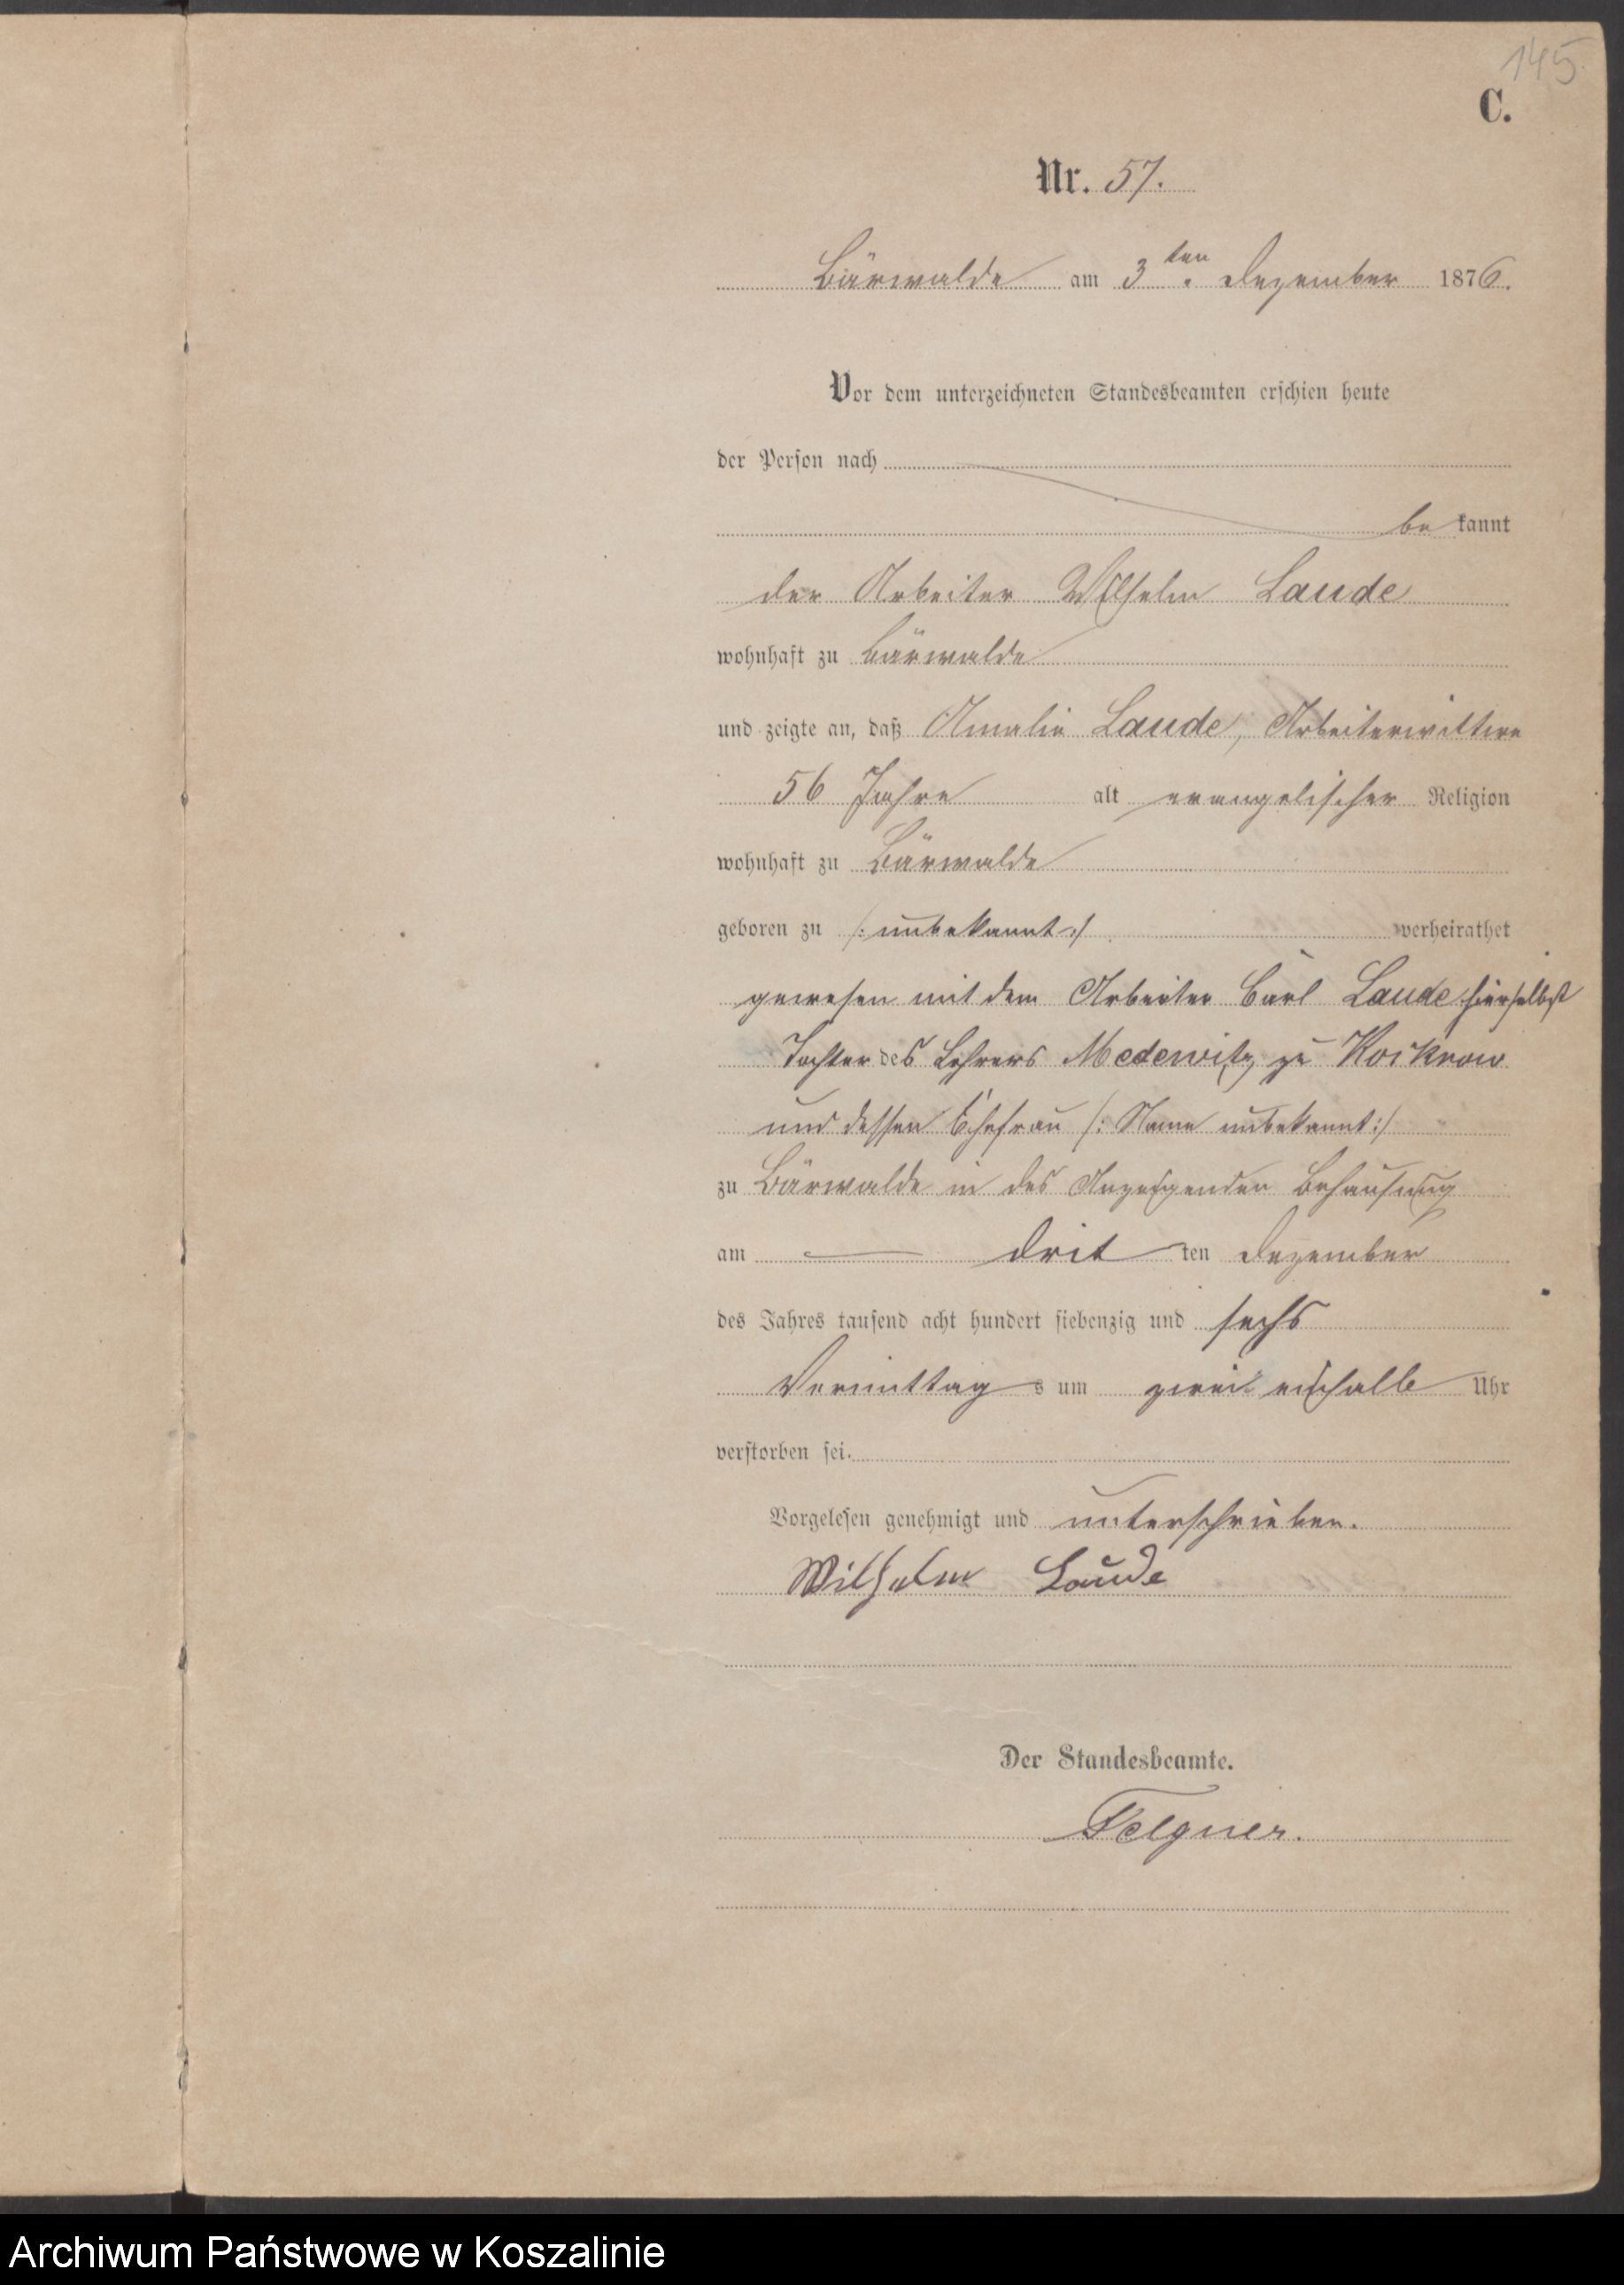 145.
C.
Nr. 57.
Bärwalde am 3ten Dezember 1876.
Vor dem unterzeichneten Standesbeamten erschien heute
der Person nach
bekannt
der Arbeiter Wilhelm Laude
wohnhaft zu Bärwalde
und zeigte an, daß Amalie Laude, Arbeiterwittwe
56 Jahre alt evangelischer Religion
wohnhaft zu Bärwalde
geboren zu /: unbekannt :/ verheirathet
gewesen mit dem Arbeiter Carl Laude hierselbst
Tochter des Lehrers Medewitz zu
und dessen Ehefrau /: Name unbekannt :/
zu Bärwalde in des Anzeigenden Behausung
am drit ten Dezember
des Jahres tausend acht hundert siebenzig und sechs
Vormittags um Uhr
verstorben sei.
Vorgelesen genehmigt und unterschrieben.
Wilhelm Laude
Der Standesbeamte.
Felgner.
Archiwum Państwowe w Koszalinie